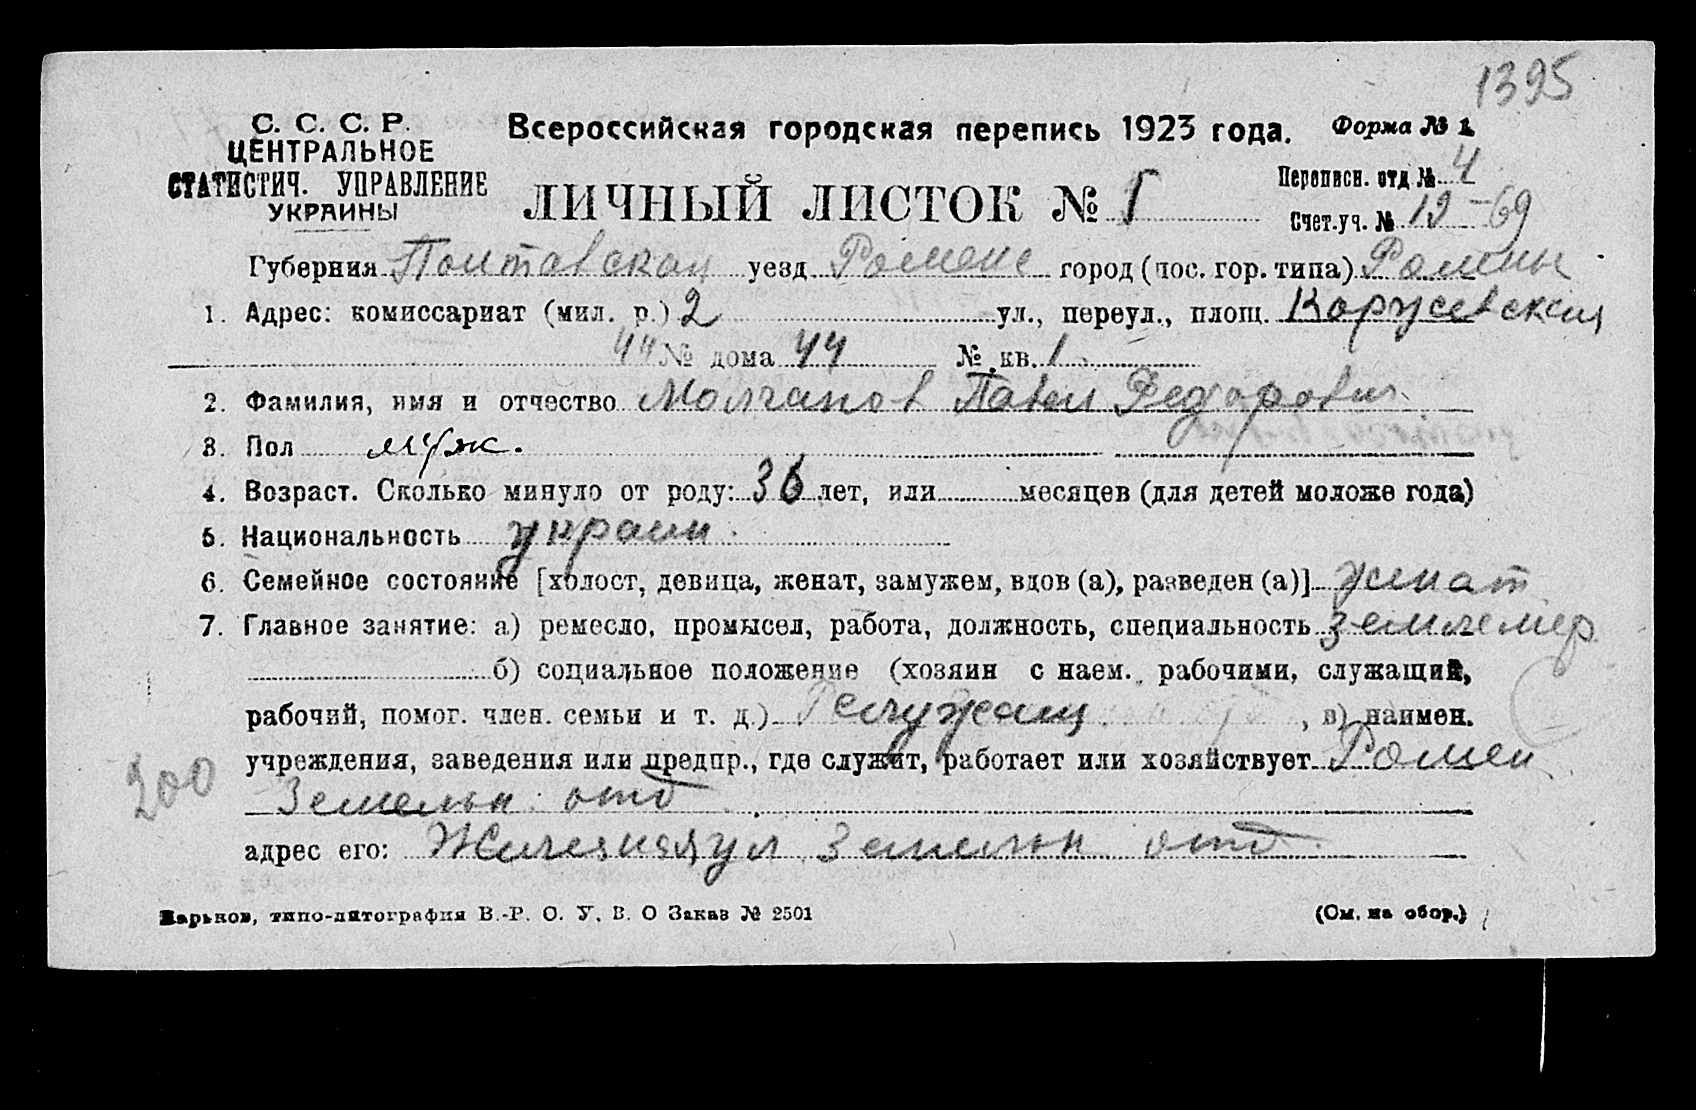 1395
С. С. С. Р.
ЦЕНТРАЛЬНОЕ
СТАТИСТИЧ. УПРАВЛЕНИЕ
УКРАИНЫ
Всероссийская городская перепись 1923 года.
Форма № 1.
ЛИЧНЫЙ ЛИСТОК №
Переписн. отд. № 4
Счет. уч. № 19-69
Губерния Полтавская уезд Роменс город (пос. гор. типа) Ромны
1. Адрес: комиссариат (мил. р.) 2 ул., переул., площ.
44 № дома 44 № кв. 1
2. Фамилия, имя и отчество Молчанов Павел Федорович
3. Пол муж.
4. Возраст. Сколько минуло от роду: 36 лет, или месяцев (для детей моложе года)
5. Национальность украин
6. Семейное состояние [холост, девица, женат, замужем, вдов (а), разведен (а)] женат
7. Главное занятие: а) ремесло, промысел, работа, должность, специальность землемер
б) социальное положение (хозяин с наем. рабочими, служащий,
рабочий, помог. член. семьи и т. д.) служащ , в) наимен.
учреждения, заведения или предпр., где служит, работает или хозяйствует Ромен
Земельн. отд
200
адрес его: ул Земельн отд
Харьков, типо-литография В.-Р. О. У. В. О Заказ № 2501
(См. на обор.)